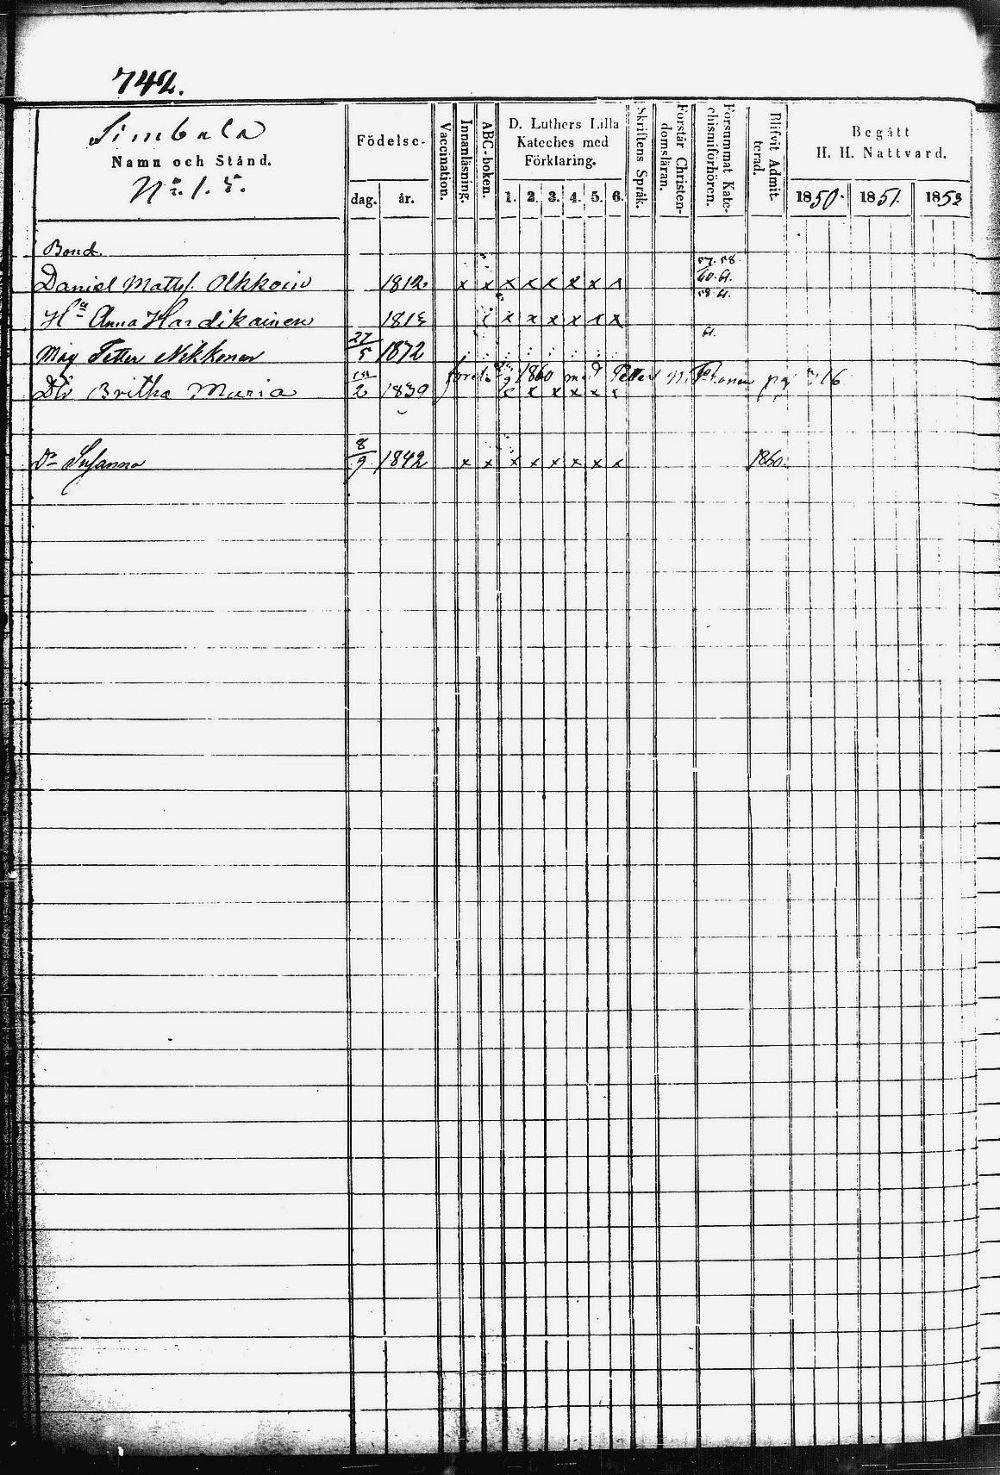 742.
Simbala
Namn och Stånd.
No 1. 5.
Födelse-
dag. år.
Vaccination.
Innanläsning.
ABC-boken.
D. Luthers Lilla
Kateches med
Förklaring.
1. 2. 3. 4. 5. 6.
Skriftens Språk.
Förstår Christen-
domsläran.
Försummat Kate-
chismiförhören.
Blifvit Admit-
terad.
Begått
H. H. Nattvard.
1850. 1851. 1853
Bond.
57. 58
Daniel Matts. Olkkoin 1812 x x x x x x x x 60. 61.
58. 61.
Hu Anna Hardikainen 1815 x x x x x x
61.
Måg Petter Nikkonen 27/5 1872
1860 med Petter 16
Dtr Britha Maria 1839 x x x x x x
Dr Susanna 8/9 1842 x x x x x x x x 1860.